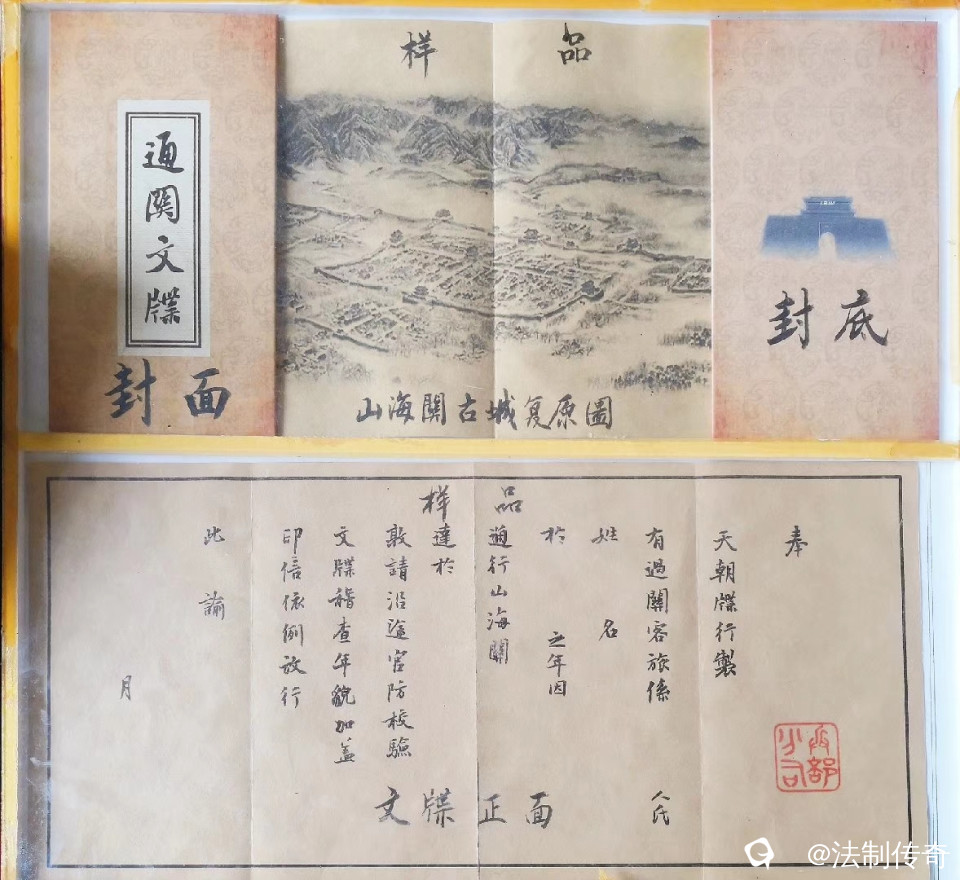 样品
通關文牒
封面
山海關古城复原圖
封底
样品
奉
天朝牒行製
有過關客旅係 人氏
姓名
於 之年因
通行山海關
達於
敦請沿途官防校驗
文牒稽查年貌加盖
印信依例放行
此諭
月
文牒正面
@法制传奇